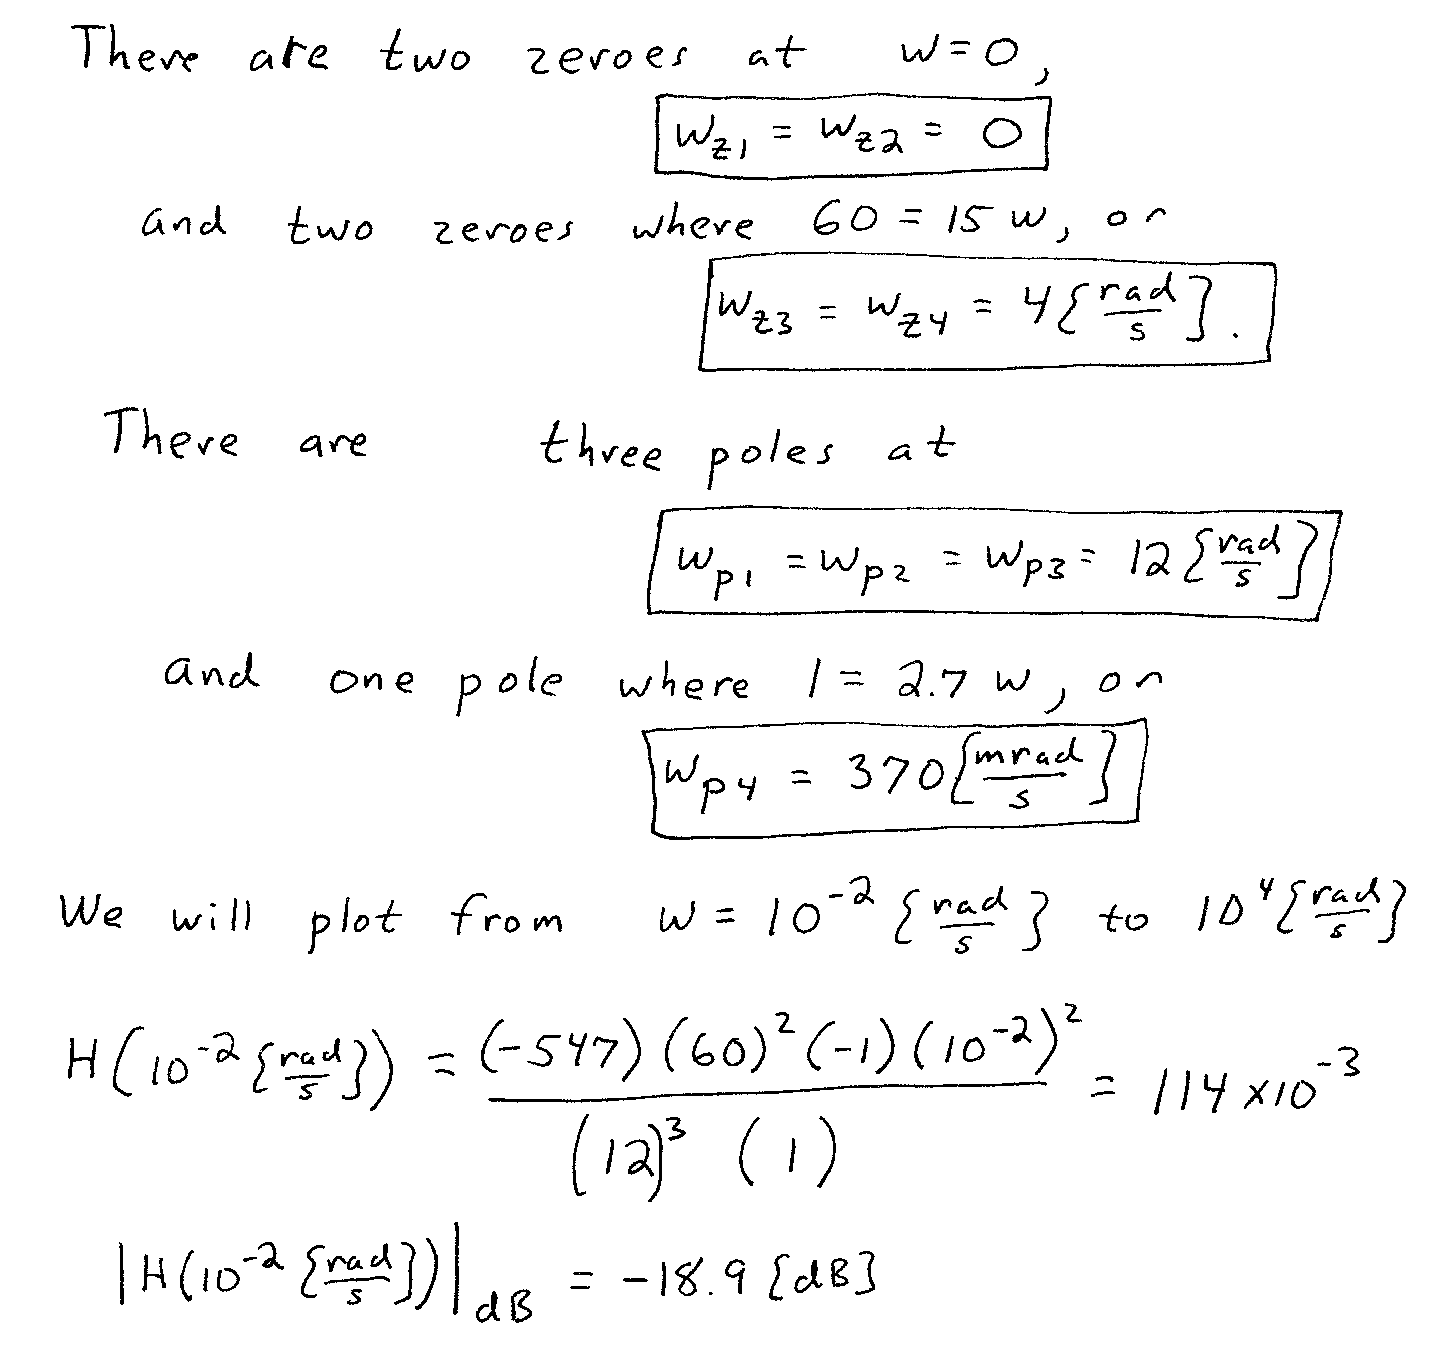 There are two zeroes at w=0,
w_z1 = w_z2 = 0
and two zeroes where 60 = 15 w, or
w_z3 = w_z4 = 4 {rad/s}.
There are three poles at
w_p1 = w_p2 = w_p3 = 12 {rad/s}
and one pole where 1 = 2.7 w, or
w_p4 = 370 {mrad/s}
We will plot from w = 10^-2 {rad/s} to 10^4 {rad/s}
H(10^-2 {rad/s}) = (-547)(60)^2(-1)(10^-2)^2 / (12)^3 (1) = 114 x10^-3
|H(10^-2 {rad/s})|_dB = -18.9 {dB}